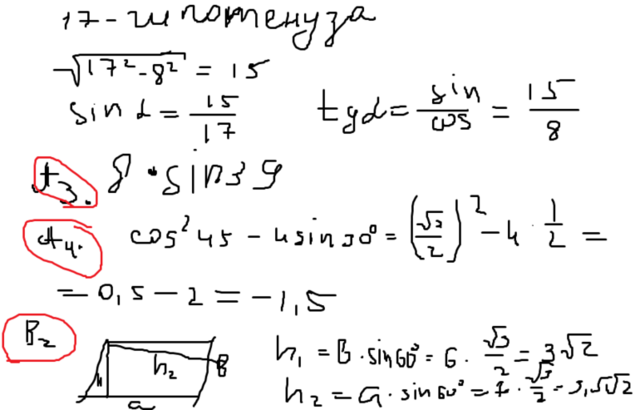 17 - гипотенуза
√(17² - 8²) = 15
sin α = 15/17
tg α = sin/cos = 15/8
A3. 8 · sin 39
A4. cos² 45 - 4 sin 30° = (√2/2)² - 4 · 1/2 =
= 0,5 - 2 = -1,5
B2
h
h₂
B
a
h₁ = B · sin 60° = 6 · √3/2 = 3√2
h₂ = a · sin 60° = 7 · √3/2 = 3,5√2